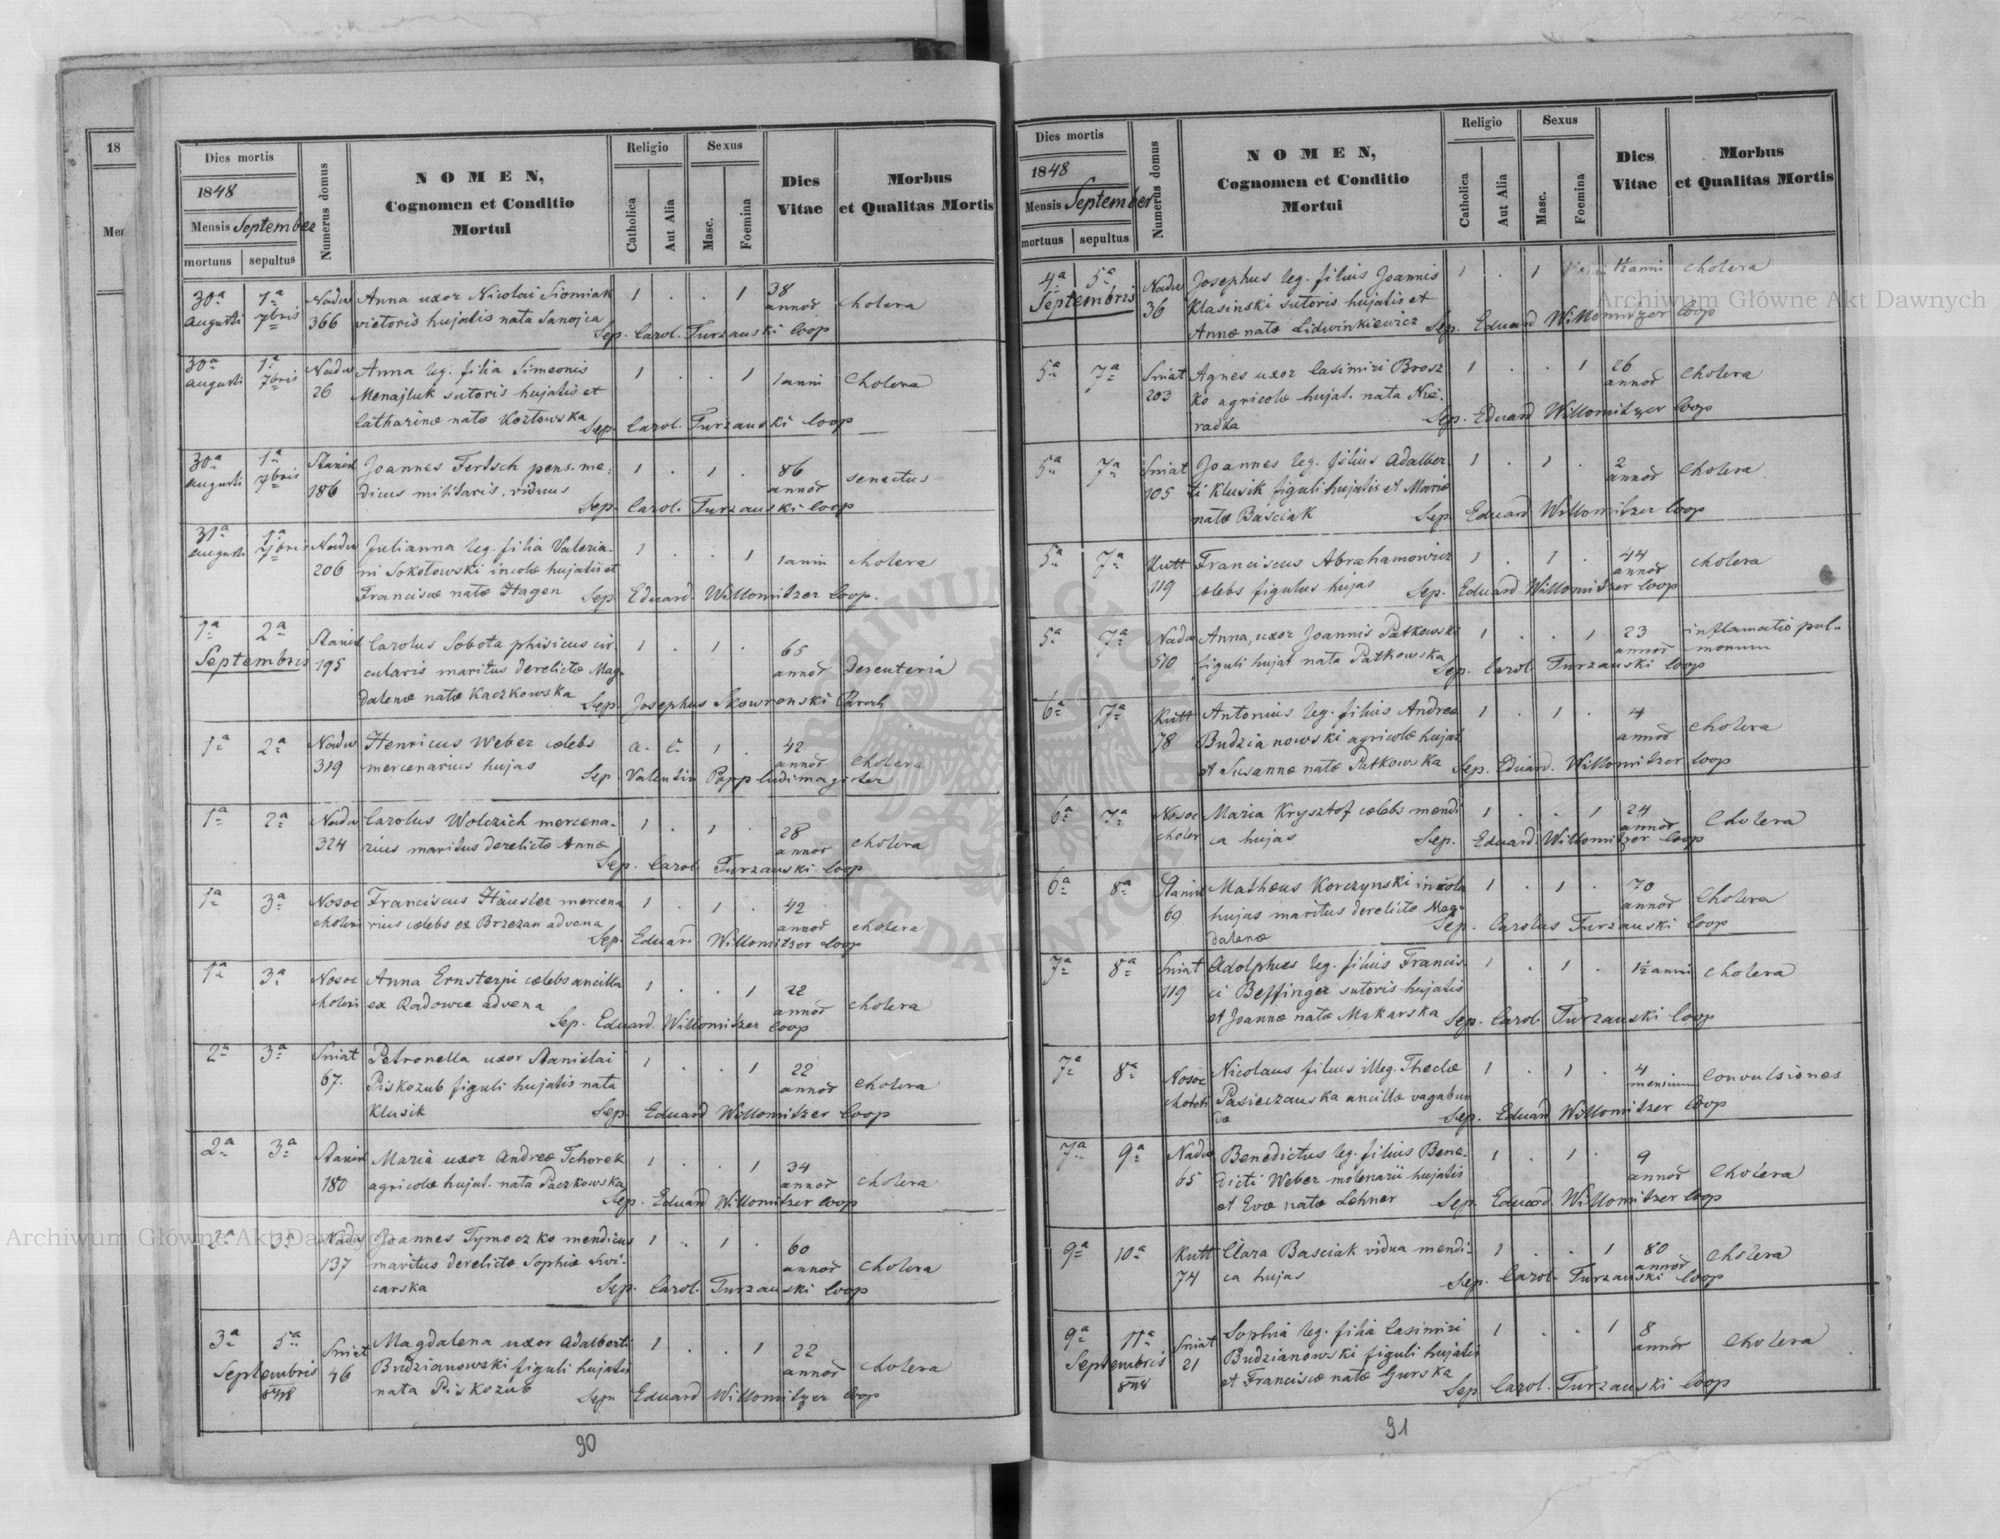 18
Men
Dies mortis
1848
Mensis September
mortuus sepultus
Numerus domus
NOMEN,
Cognomen et Conditio
Mortui
Religio
Catholica
Aut Alia
Sexus
Masc.
Foemina
Dies
Vitae
Morbus
et Qualitas Mortis
30ª 1ª Nadw Anna uxor Nicolai Siomiak 1 . . 1 38
augusti 7bris 366 vietoris hujatis nata Sanojca annor cholera
Sep. Carol. Turzanski Coop
30ª 1ª Nadw Anna leg. filia Simeonis 1 . . 1 1 anni cholera
augusti 7bris 26 Menajluk sutoris hujatis et
Catharinæ natæ Kozłowska Sep. Carol. Turzanski Coop
30ª 1ª Stanisl Joannes Fertsch pens. me- 1 . 1 . 86 senectus
augusti 7bris 186 dicus militaris, viduus annor
Sep. Carol. Turzanski Coop
31ª 1ª Nadw Julianna leg. filia Valeria- 1 . . 1 1 anni cholera
augusti 7bris 206 ni Sokołowski incolæ hujatis et
Franciscæ natæ Hagen Sep. Eduard Willomitzer Coop.
1ª 2ª Stanisl Carolus Sobota phisicus cir- 1 . 1 . 65
Septembris 195 cularis maritus derelictæ Mag- annor desenteria
dalenæ natæ Kaczkowska Sep. Josephus Skowronski Paroch
1ª 2ª Nadw Henricus Weber cælebs a. c. 1 . 42
319 mercenarius hujas annor cholera
Sep. Valentin Popp ludimagister
1ª 2ª Nadw Carolus Wolczich mercena- 1 . 1 . 28
324 rius maritus derelictæ Annæ annor cholera
Sep. Carol. Turzanski Coop
1ª 3ª Nosoc Franciscus Häusler mercena 1 . 1 . 42
choleri rius cælebs ex Brzezan advena annor cholera
Sep. Eduard Willomitzer Coop
1ª 3ª Nosoc Anna Ernsterpi cælebs ancilla 1 . . 1 22
choleri ex Radowce advena annor cholera
Sep. Eduard. Willomitzer Coop
2ª 3ª Sniat Petronella uxor Stanislai 1 . . 1 22
67. Piskozub figuli hujatis nata annor cholera
Klusik Sep. Eduard Willomitzer Coop
2ª 3ª Stanisl Maria uxor Andreæ Tchorek 1 . . 1 34
180 agricolæ hujat. nata Paczkowska annor cholera
Sep. Eduard Willomitzer Coop
2ª 3ª Nadw Joannes Tymoczko mendicus 1 . 1 . 60
137 maritus derelictæ Sophiæ Swi- annor cholera
carska Sep. Carol. Turzanski Coop
3ª 5ª Sniat Magdalena uxor Adalberti 1 . . 1 22
Septembris 46 Budzianowski figuli hujatis annor cholera
848 nata Piskozub Sep. Eduard Willomitzer Coop
90
Dies mortis
1848
Mensis September
mortuus sepultus
Numerus domus
NOMEN,
Cognomen et Conditio
Mortui
Religio
Catholica
Aut Alia
Sexus
Masc.
Foemina
Dies
Vitae
Morbus
et Qualitas Mortis
4ª 5ª Nadw Josephus leg. filius Joannis 1 . 1 1½ anni cholera
Septembris 36 Klasinski sutoris hujatis et
Annæ natæ Lidwinkiewicz Sep. Eduard Willomitzer Coop
5ª 7ª Sniat Agnes uxor Casimiri Brosz 1 . . 1 26 cholera
203 ko agricolæ hujat. nata Nie- annor
radka Sep. Eduard Willomitzer Coop
5ª 7ª Sniat Joannes leg. filius Adalber 1 . 1 . 2 cholera
105 ti Klusik figuli hujatis et Mariæ annor
natæ Basciak Sep. Eduard Willomitzer Coop
5ª 7ª Kutt Franciscus Abrahamowicz 1 . 1 . 44 cholera
119 cælebs figulus hujas annor
Sep. Eduard Willomitzer Coop
5ª 7ª Nadw Anna, uxor Joannis Patkowski 1 . . 1 23 inflamatio pul-
510 figuli hujat nata Patkowska annor monum
Sep. Carol. Turzanski Coop
6ª 7ª Kutt Antonius leg. filius Andreæ 1 . 1 . 4 cholera
78 Budzianowski agricolæ hujat. annor
et Susannæ natæ Patkowska Sep. Eduard. Willomitzer Coop
6ª 7ª Nosoc Maria Krysztof cælebs mendi 1 . . 1 24 cholera
choler ca hujas annor
Sep. Eduard Willomitzer Coop
6ª 8ª Stanisl Matheus Korczynski incola 1 . 1 . 70 cholera
69 hujas maritus derelictæ Mag- annor
dalenæ Sep. Carolus Turzanski Coop
7ª 8ª Sniat Adolphus leg. filius Francis- 1 . 1 . 1½ anni cholera
119 ci Beffinger sutoris hujatis
et Joannæ natæ Makarska Sep. Carol. Turzanski Coop
7ª 8ª Nosoc Nicolaus filius illeg. Theclæ 1 . 1 . 4 convulsiones
choleri Pasieczanska ancillæ vagabun mensium
dæ Sep. Eduard Willomitzer Coop
7ª 9ª Nadw Benedictus leg. filius Bene- 1 . 1 . 9
65 dicti Weber molenarii hujatis annor cholera
et Evæ natæ Lehner Sep. Eduard. Willomitzer Coop
9ª 10ª Kutt Clara Basciak vidua mendi- 1 . . 1 80 cholera
74 ca hujas annor
Sep. Carol. Turzanski Coop
9ª 11ª Sniat Sophia leg. filia Casimiri 1 . . 1 8 cholera
Septembris 21 Budzianowski figuli hujatis annor
848 et Franciscæ natæ Gurska Sep. Carol. Turzanski Coop
91
Archiwum Główne Akt Dawnych
Archiwum Główne Akt Dawnych
ARCHIWUM GŁÓWNE AKT DAWNYCH